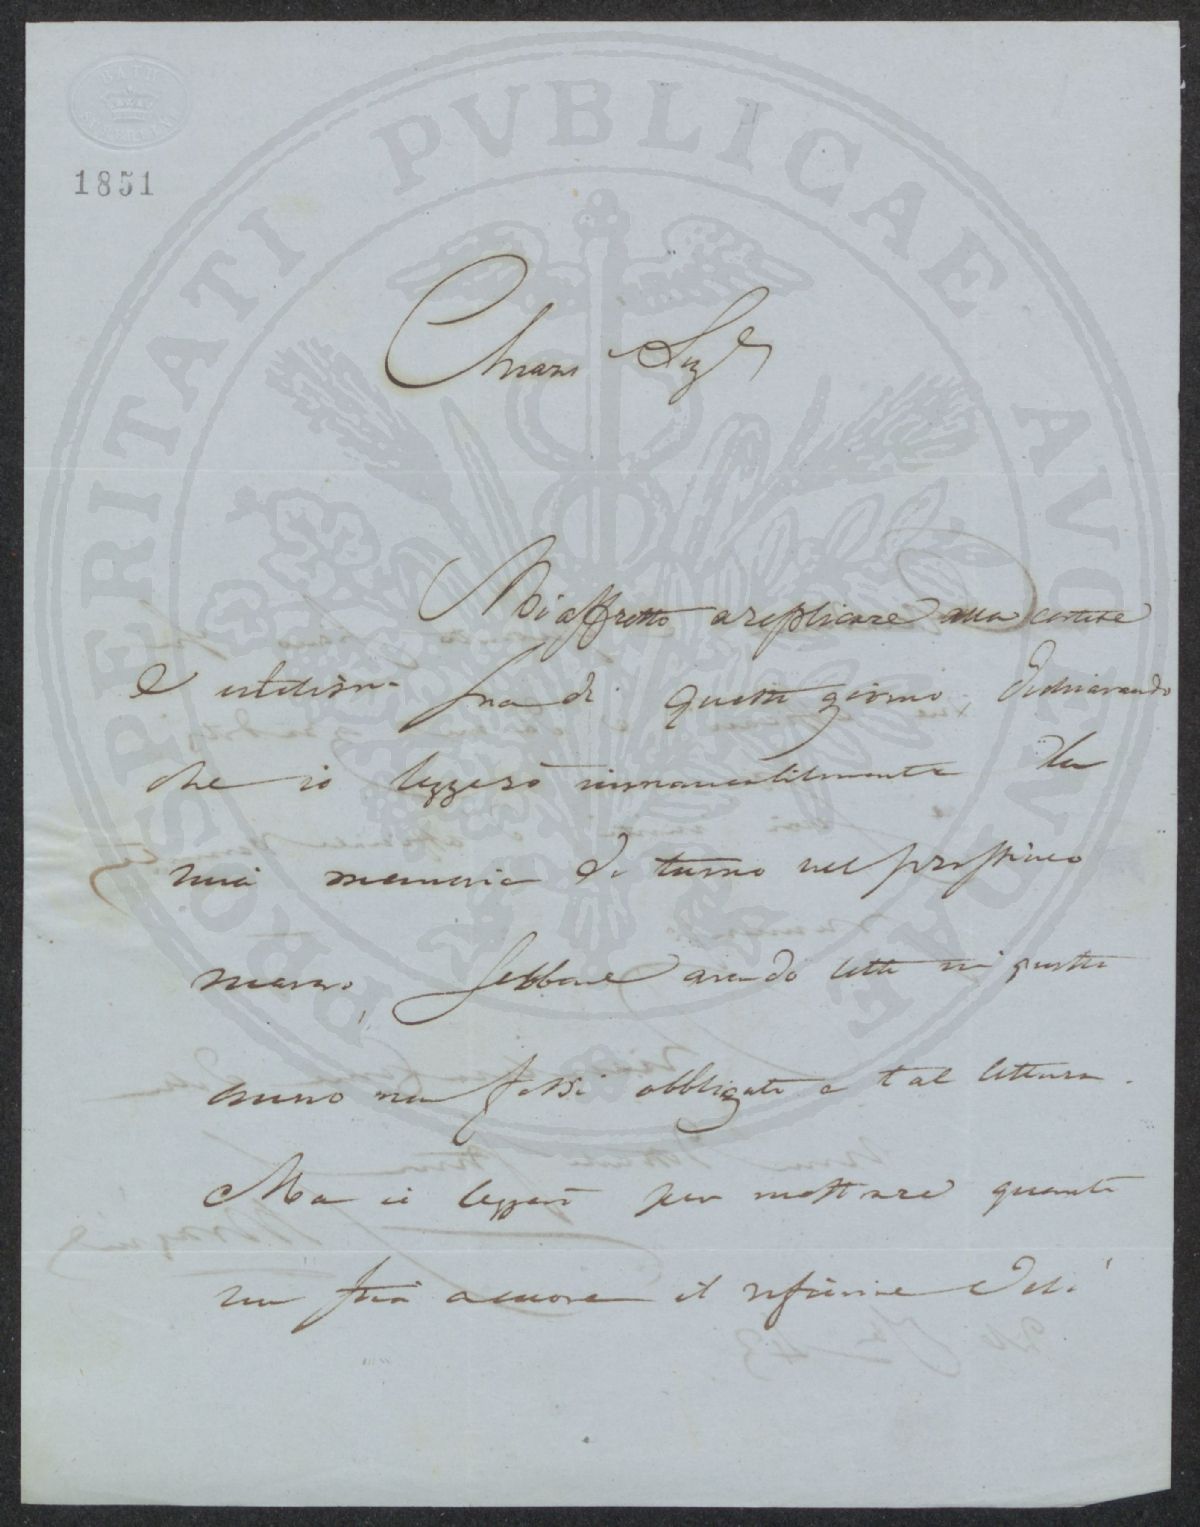 BATH
1851
PROSPERITATI PVBLICAE AVGENDAE
Chiaro Sigre
Mi affretto a replicare alla cortese
e del di questi giorni, dichiarando
che io leggerò immancabilmente la
mia memoria di turno nel prossimo
marzo, sebbene avendo letto in questo
anno non fossi obbligato a tal lettura.
Ma io leggerò per mostrare quanto
mi stia a cuore il